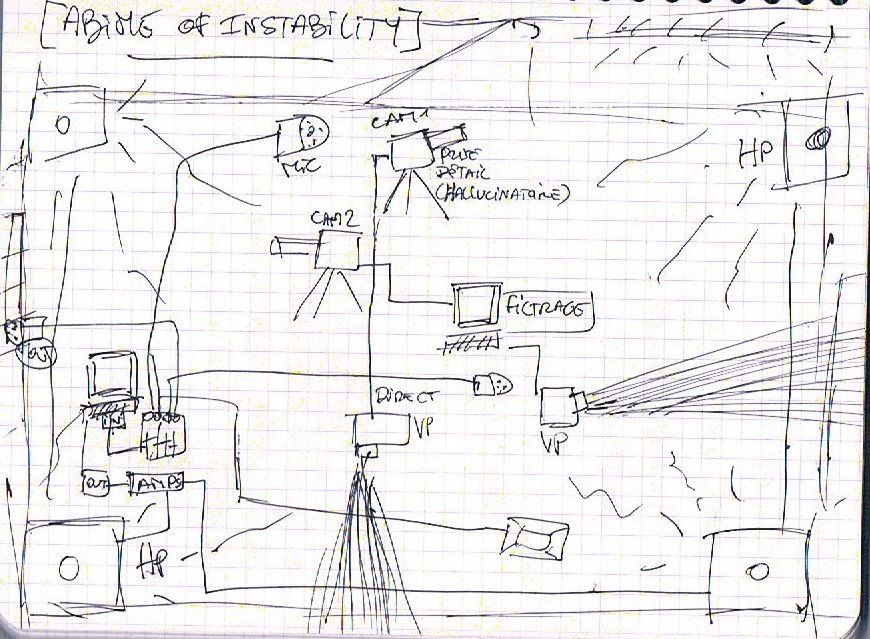 [ABiME OF INSTABiLiTY]
CAM1
MiC
PRiSE
DÉTAIL
(HALLUCINATOiRE)
HP
CAM2
FiLTRAGE
OUT
DiRECT
VP
VP
IN
OUT
AMPS
HP